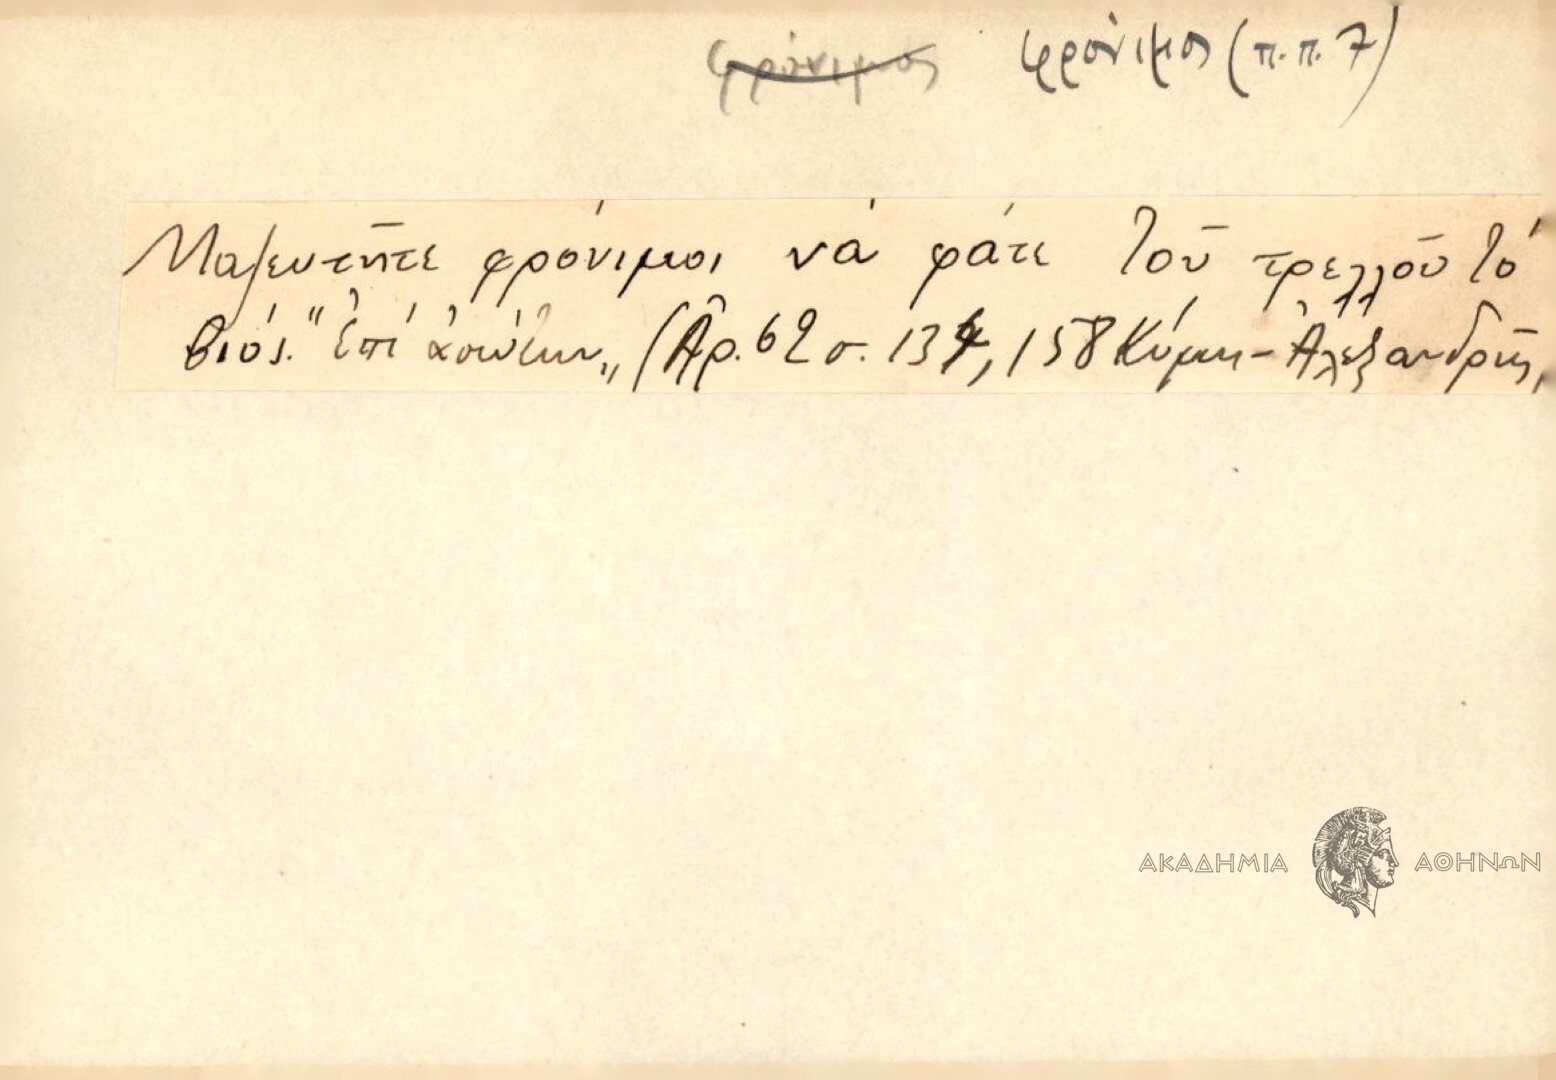 φρόνιμος φρόνιμος (π.π. 7)
Μαζευτῆτε φρόνιμοι νά φάτε τοῦ τρελλοῦ τό
βιός. "Ἐπί ἀσώτων„ (Ἀρ. 62 σ. 134, 158 Κύμη - Ἀλεξανδρῆς,
ΑΚΑΔΗΜΙΑ ΑΘΗΝΩΝ